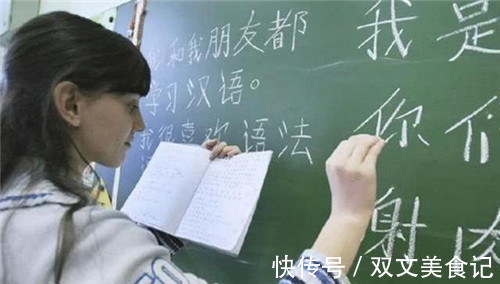 和我朋友都
学习汉语。
我很喜欢语法
我是
你们
射
快传号 / 双文美食记